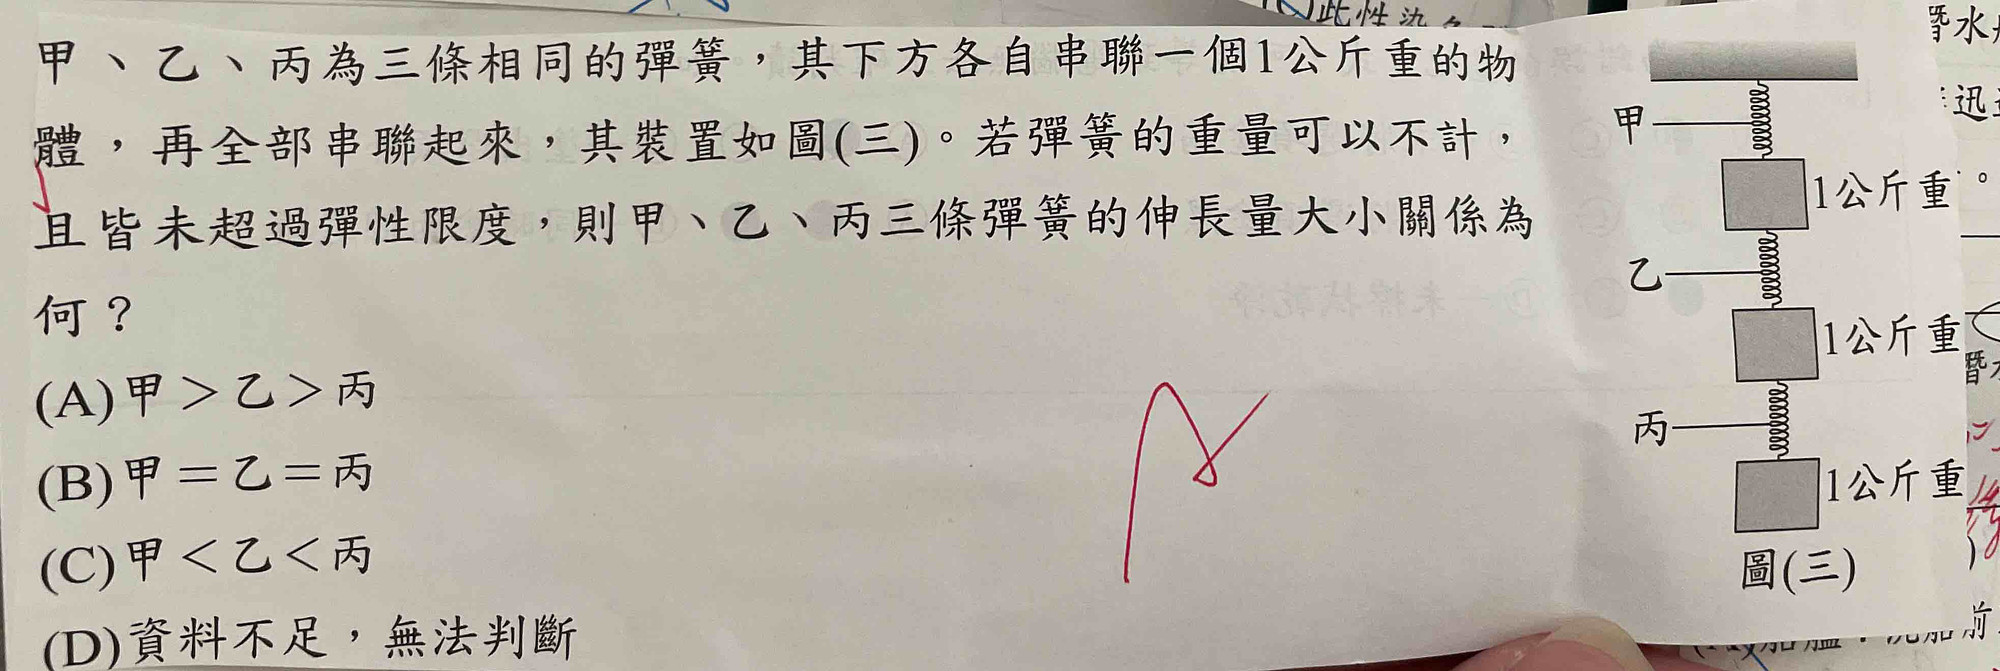 甲、乙、丙為三條相同的彈簧，其下方各自串聯一個1公斤重的物
體，再全部串聯起來，其裝置如圖(三)。若彈簧的重量可以不計，
且皆未超過彈性限度，則甲、乙、丙三條彈簧的伸長量大小關係為
何？
(A)甲＞乙＞丙
(B)甲＝乙＝丙
(C)甲＜乙＜丙
(D)資料不足，無法判斷
甲
1公斤重
乙
1公斤重
丙
1公斤重
圖(三)
A